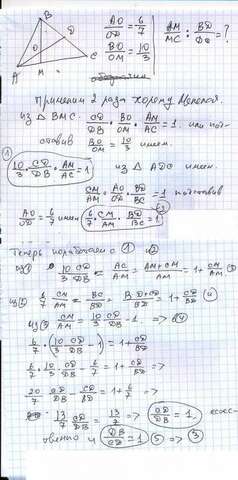 B
AO/OD = 6/7
BO/OM = 10/3
AM/MC ; BD/DC = ?
O D
A M C
Применим 2 раза теорему Менелая.
из △ BMC.
CD/DB · BO/OM · AM/AC = 1. или
BO/OM = 10/3 имеем.
① 10/3 · CD/DB · AM/AC = 1
из △ ADC имеем.
CM/AM · AO/OD · BD/BC = 1
AO/OD = 6/7 имеем 6/7 · CM/AM · BD/BC = 1 ②
Теперь поработаем с ① и ②
из① 10/3 CD/DB = AC/AM = AM+CM/AM = 1 + CM/AM ③
из② 6/7 CM/AM = BC/BD = BD+CD/BD = 1 + CD/DB ④
из③ CM/AM = 10/3 CD/DB - 1 => ④
6/7 · (10/3 CD/DB - 1) = 1 + CD/DB
6/7 · 10/3 CD/DB - 6/7 = 1 + CD/DB =>
20/7 CD/DB - CD/DB = 1 + 6/7 =>
13/7 CD/DB = 13/7 => CD/DB = 1,
и DB/CD = 1 ⑤ => ③